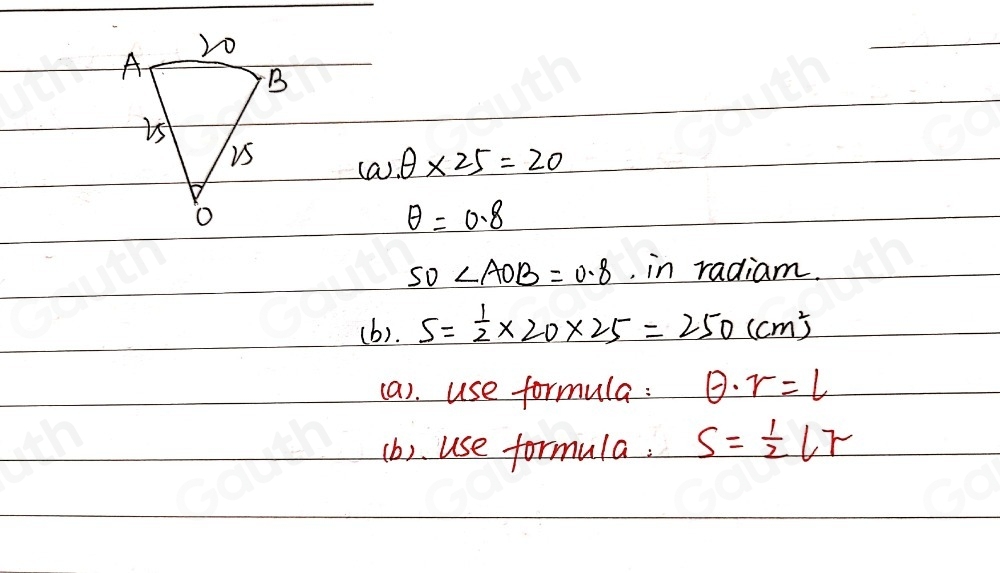 20
A
B
25
25
O
(a). θ × 25 = 20
θ = 0.8
so ∠AOB = 0.8 . in radiam.
(b). S = 1/2 × 20 × 25 = 250 (cm²)
(a). use formula : θ · r = l
(b). use formula : S = 1/2 l r
Gauth